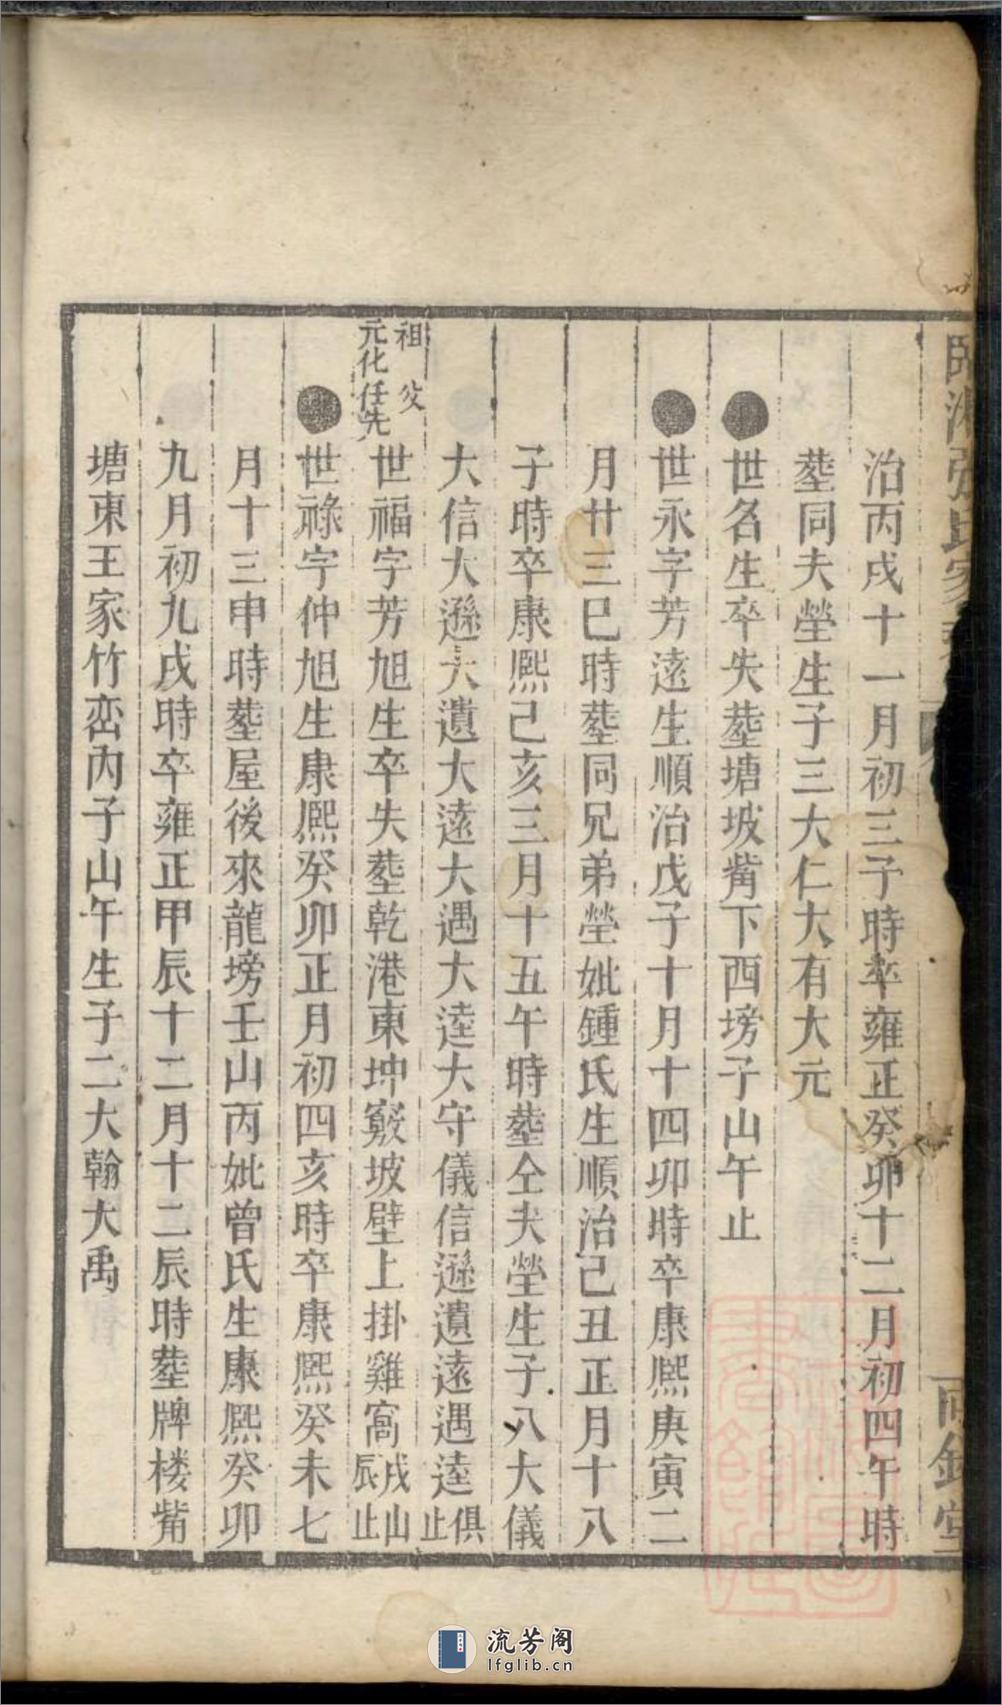 張氏家
治丙戌十一月初三子時卒雍正癸卯十二月初四午時
塟同夫塋生子三大仁大有大元
世名生卒失塟塘坡觜下西塝子山午止
世永字芳遠生順治戊子十月十四卯時卒康熙庚寅二
月廿三巳時塟同兄弟塋妣鍾氏生順治己丑正月十八
子時卒康熙己亥三月十五午時塟仝夫塋生子八大儀
大信大遜大遺大遠大遇大逵大守儀信遜遺遠遇逵俱止
祖父元化任先
世福字芳旭生卒失塟乾港東坤竅坡壁上掛雞窩戌山辰止
世祿字仲旭生康熙癸卯正月初四亥時卒康熙癸未七
月十三申時塟屋後來龍塝壬山丙妣曾氏生康熙癸卯
九月初九戌時卒雍正甲辰十二月十二辰時塟牌楼觜
塘東王家竹峦丙子山午生子二大翰大禹
流芳阁
lfglib.cn